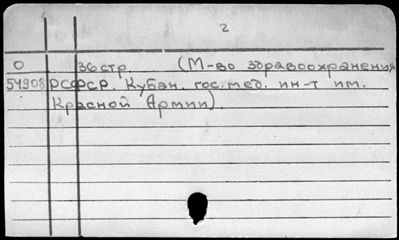 2
О 36 стр. (М-во здравоохранения
54908 РСФСР. Кубан. гос. мед. ин-т им.
Красной Армии)